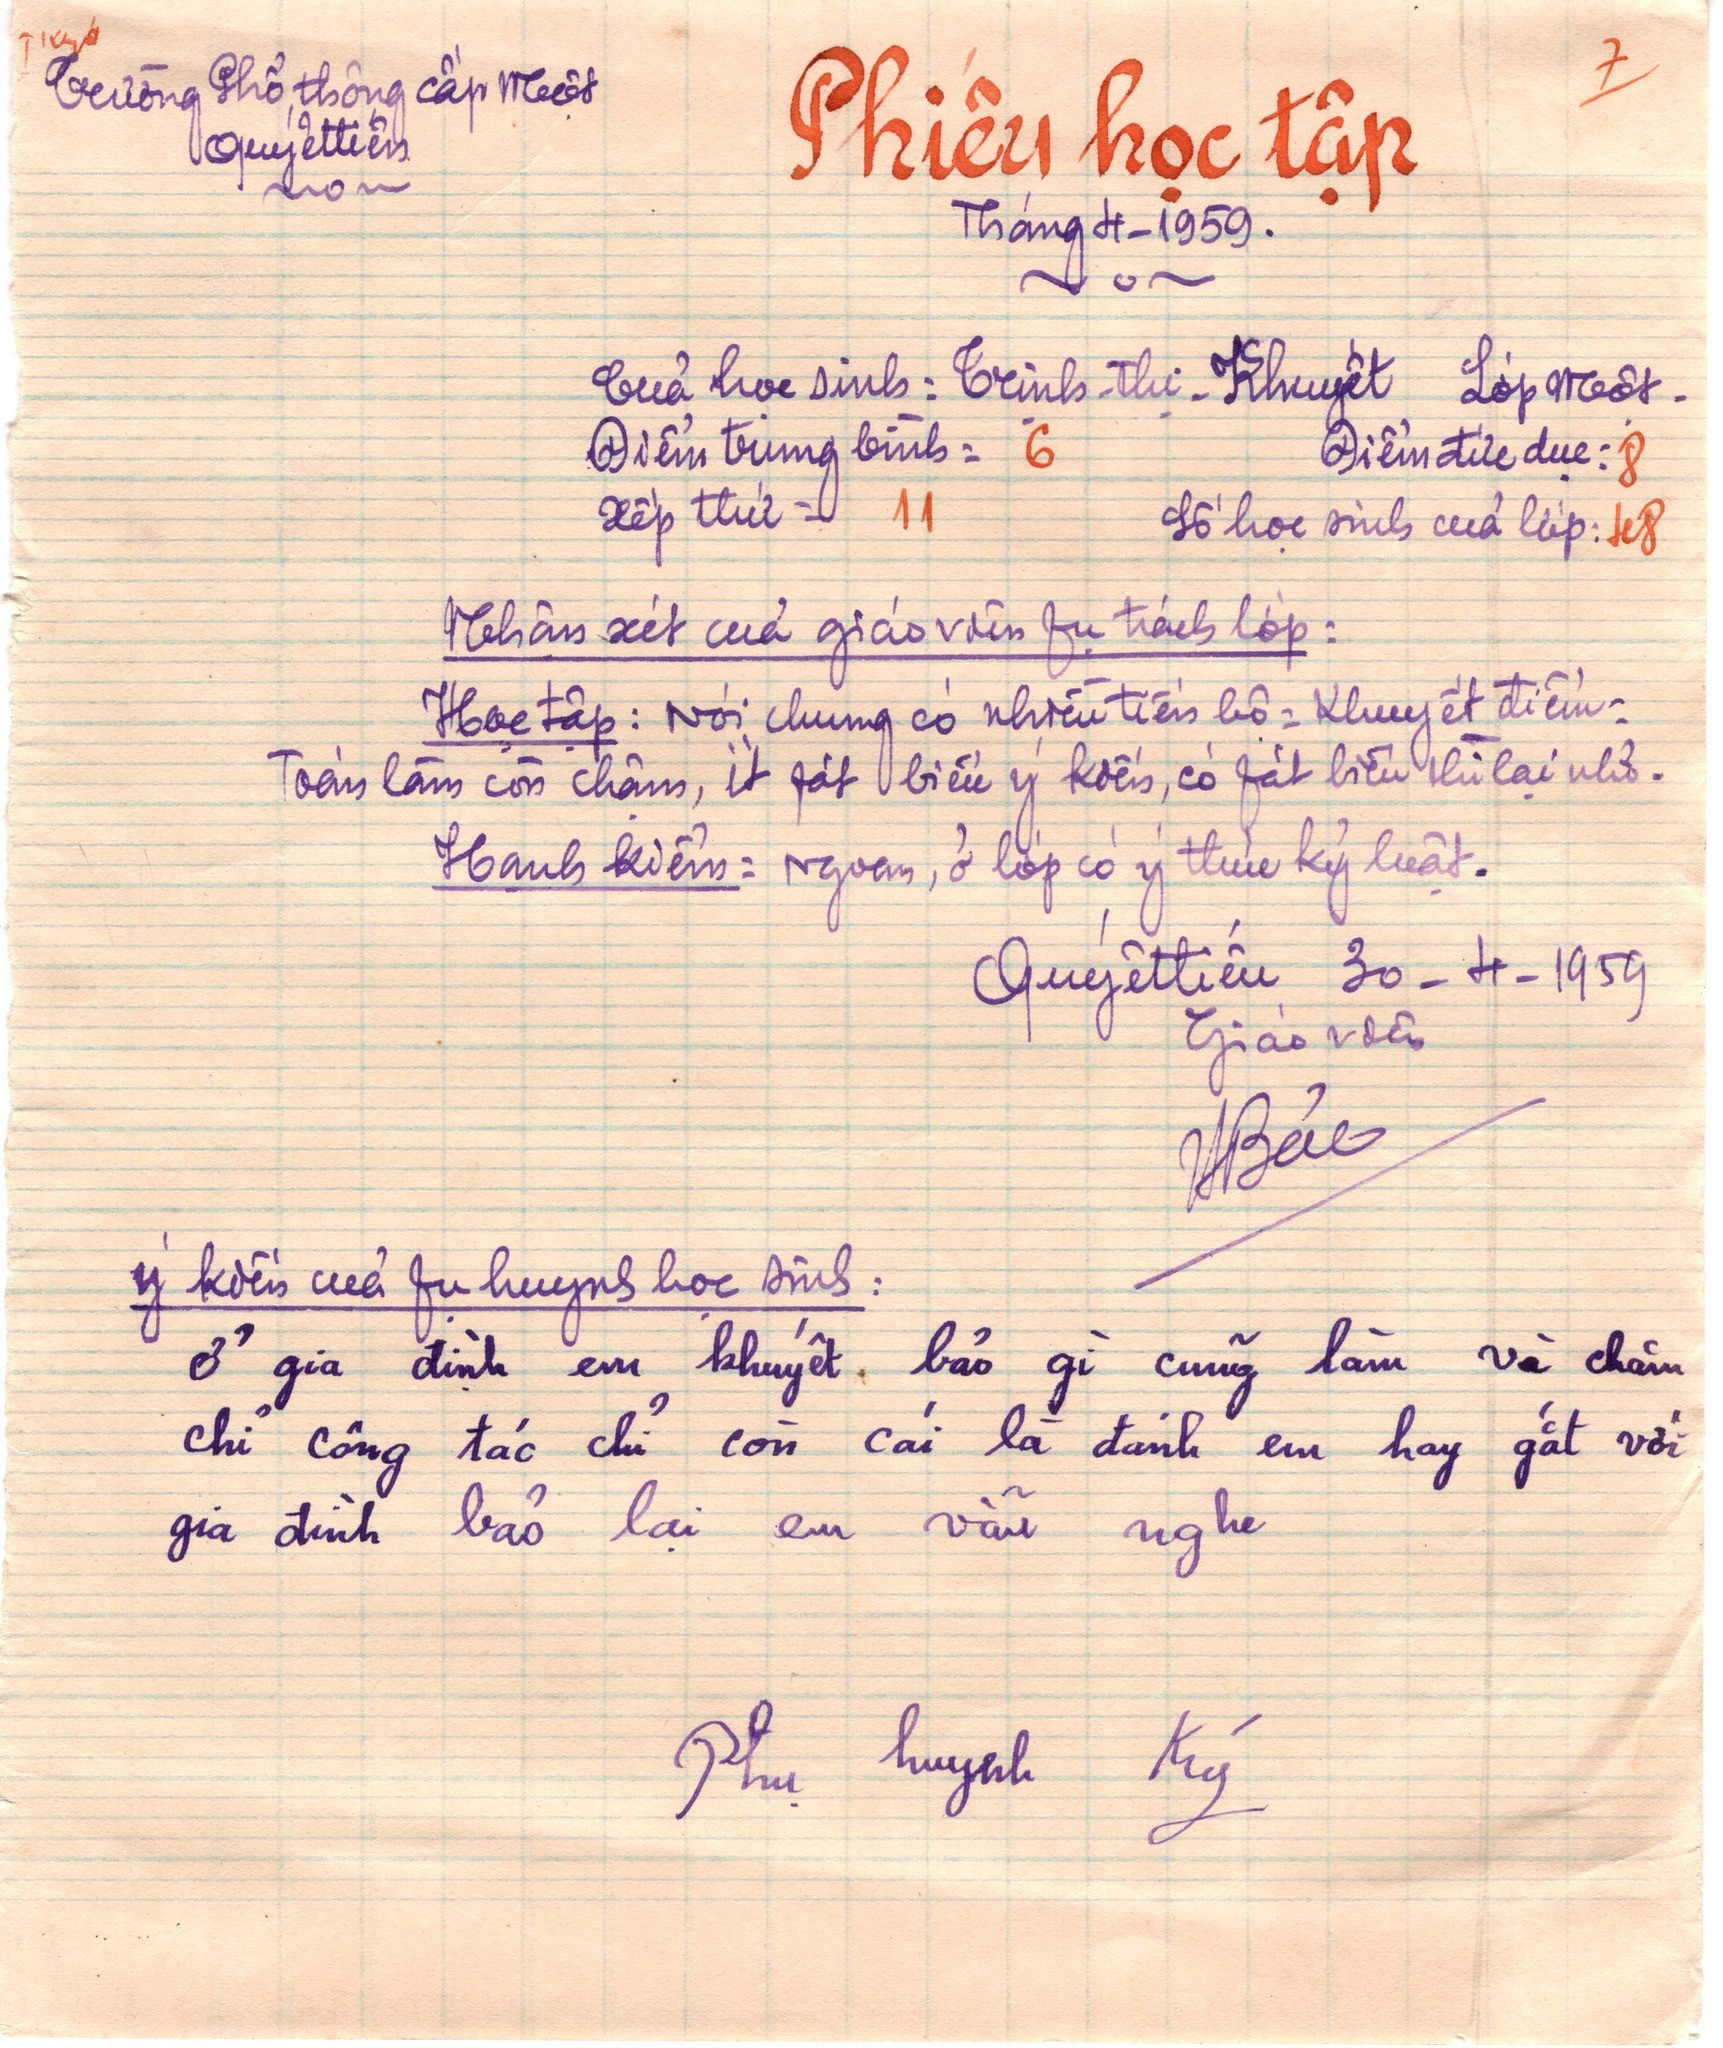 7
Trường Phổ thông cấp Một
Quyết tiến
Phiếu học tập
Tháng 4-1959.
Cuả học sinh: Trịnh-thị-Khuyết Lớp Một-
Điểm trung bình: 6 Điểm đức dục: 8
Xếp thứ = 11 Số học sinh cuả lớp: 48
Nhận xét cuả giáo viên fụ trách lớp:
Học tập: Nói chung có nhiều tiến bộ = Khuyết điểm:
Toán làm còn chậm, ít fát biểu ý kiến, có fát biểu thì lại nhỏ.
Hạnh kiểm: Ngoan, ở lớp có ý thức kỷ luật.
Quyết tiến 30-4-1959
Giáo viên
VBảo
Ý kiến cuả fụ huynh học sinh:
ở gia đình em khuyết bảo gì cũng làm và chăm
chỉ công tác chỉ còn cái là đánh em hay gắt với
gia đình bảo lại em vẫn nghe
Phụ huynh Ký